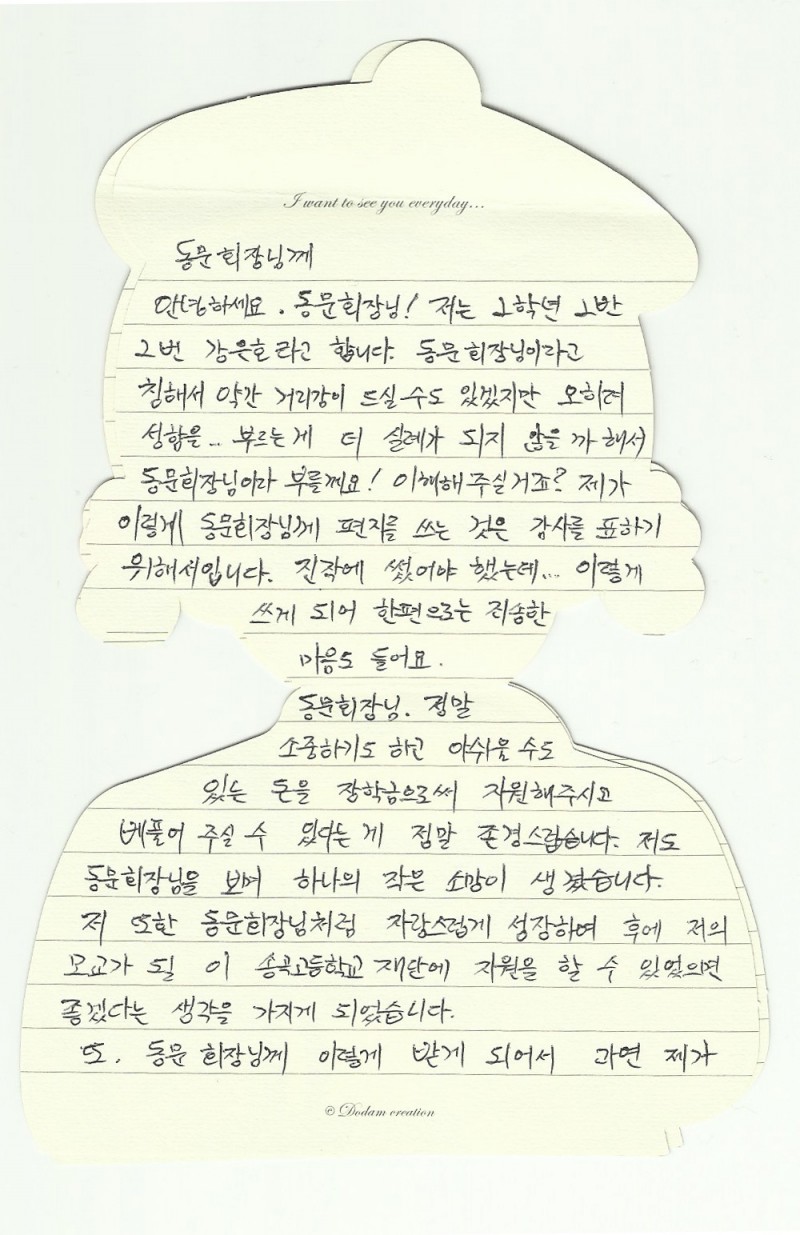 I want to see you everyday...
동문회장님께
안녕하세요. 동문회장님! 저는 2학년 2반
2번 강은호라고 합니다. 동문회장님이라고
칭해서 약간 거리감이 드실 수도 있겠지만 오히려
성함을.. 부르는게 더 실례가 되지 않을까 해서
동문회장님이라 부를께요! 이해해주실거죠? 제가
이렇게 동문회장님께 편지를 쓰는 것은 감사를 표하기
위해서입니다. 진작에 썼어야 했는데... 이렇게
쓰게 되어 한편으로는 죄송한
마음도 들어요.
동문회장님. 정말
소중하기도 하고 아쉬울 수도
있는 돈을 장학금으로써 지원해주시고
베풀어 주실 수 있다는 게 정말 존경스럽습니다. 저도
동문회장님을 보며 하나의 작은 소망이 생겼습니다.
저 또한 동문회장님처럼 자랑스럽게 성장하여 후에 저의
모교가 될 이 송곡고등학교 재단에 지원을 할 수 있었으면
좋겠다는 생각을 가지게 되었습니다.
또, 동문회장님께 이렇게 받게 되어서 과연 제가
© Dodam creation